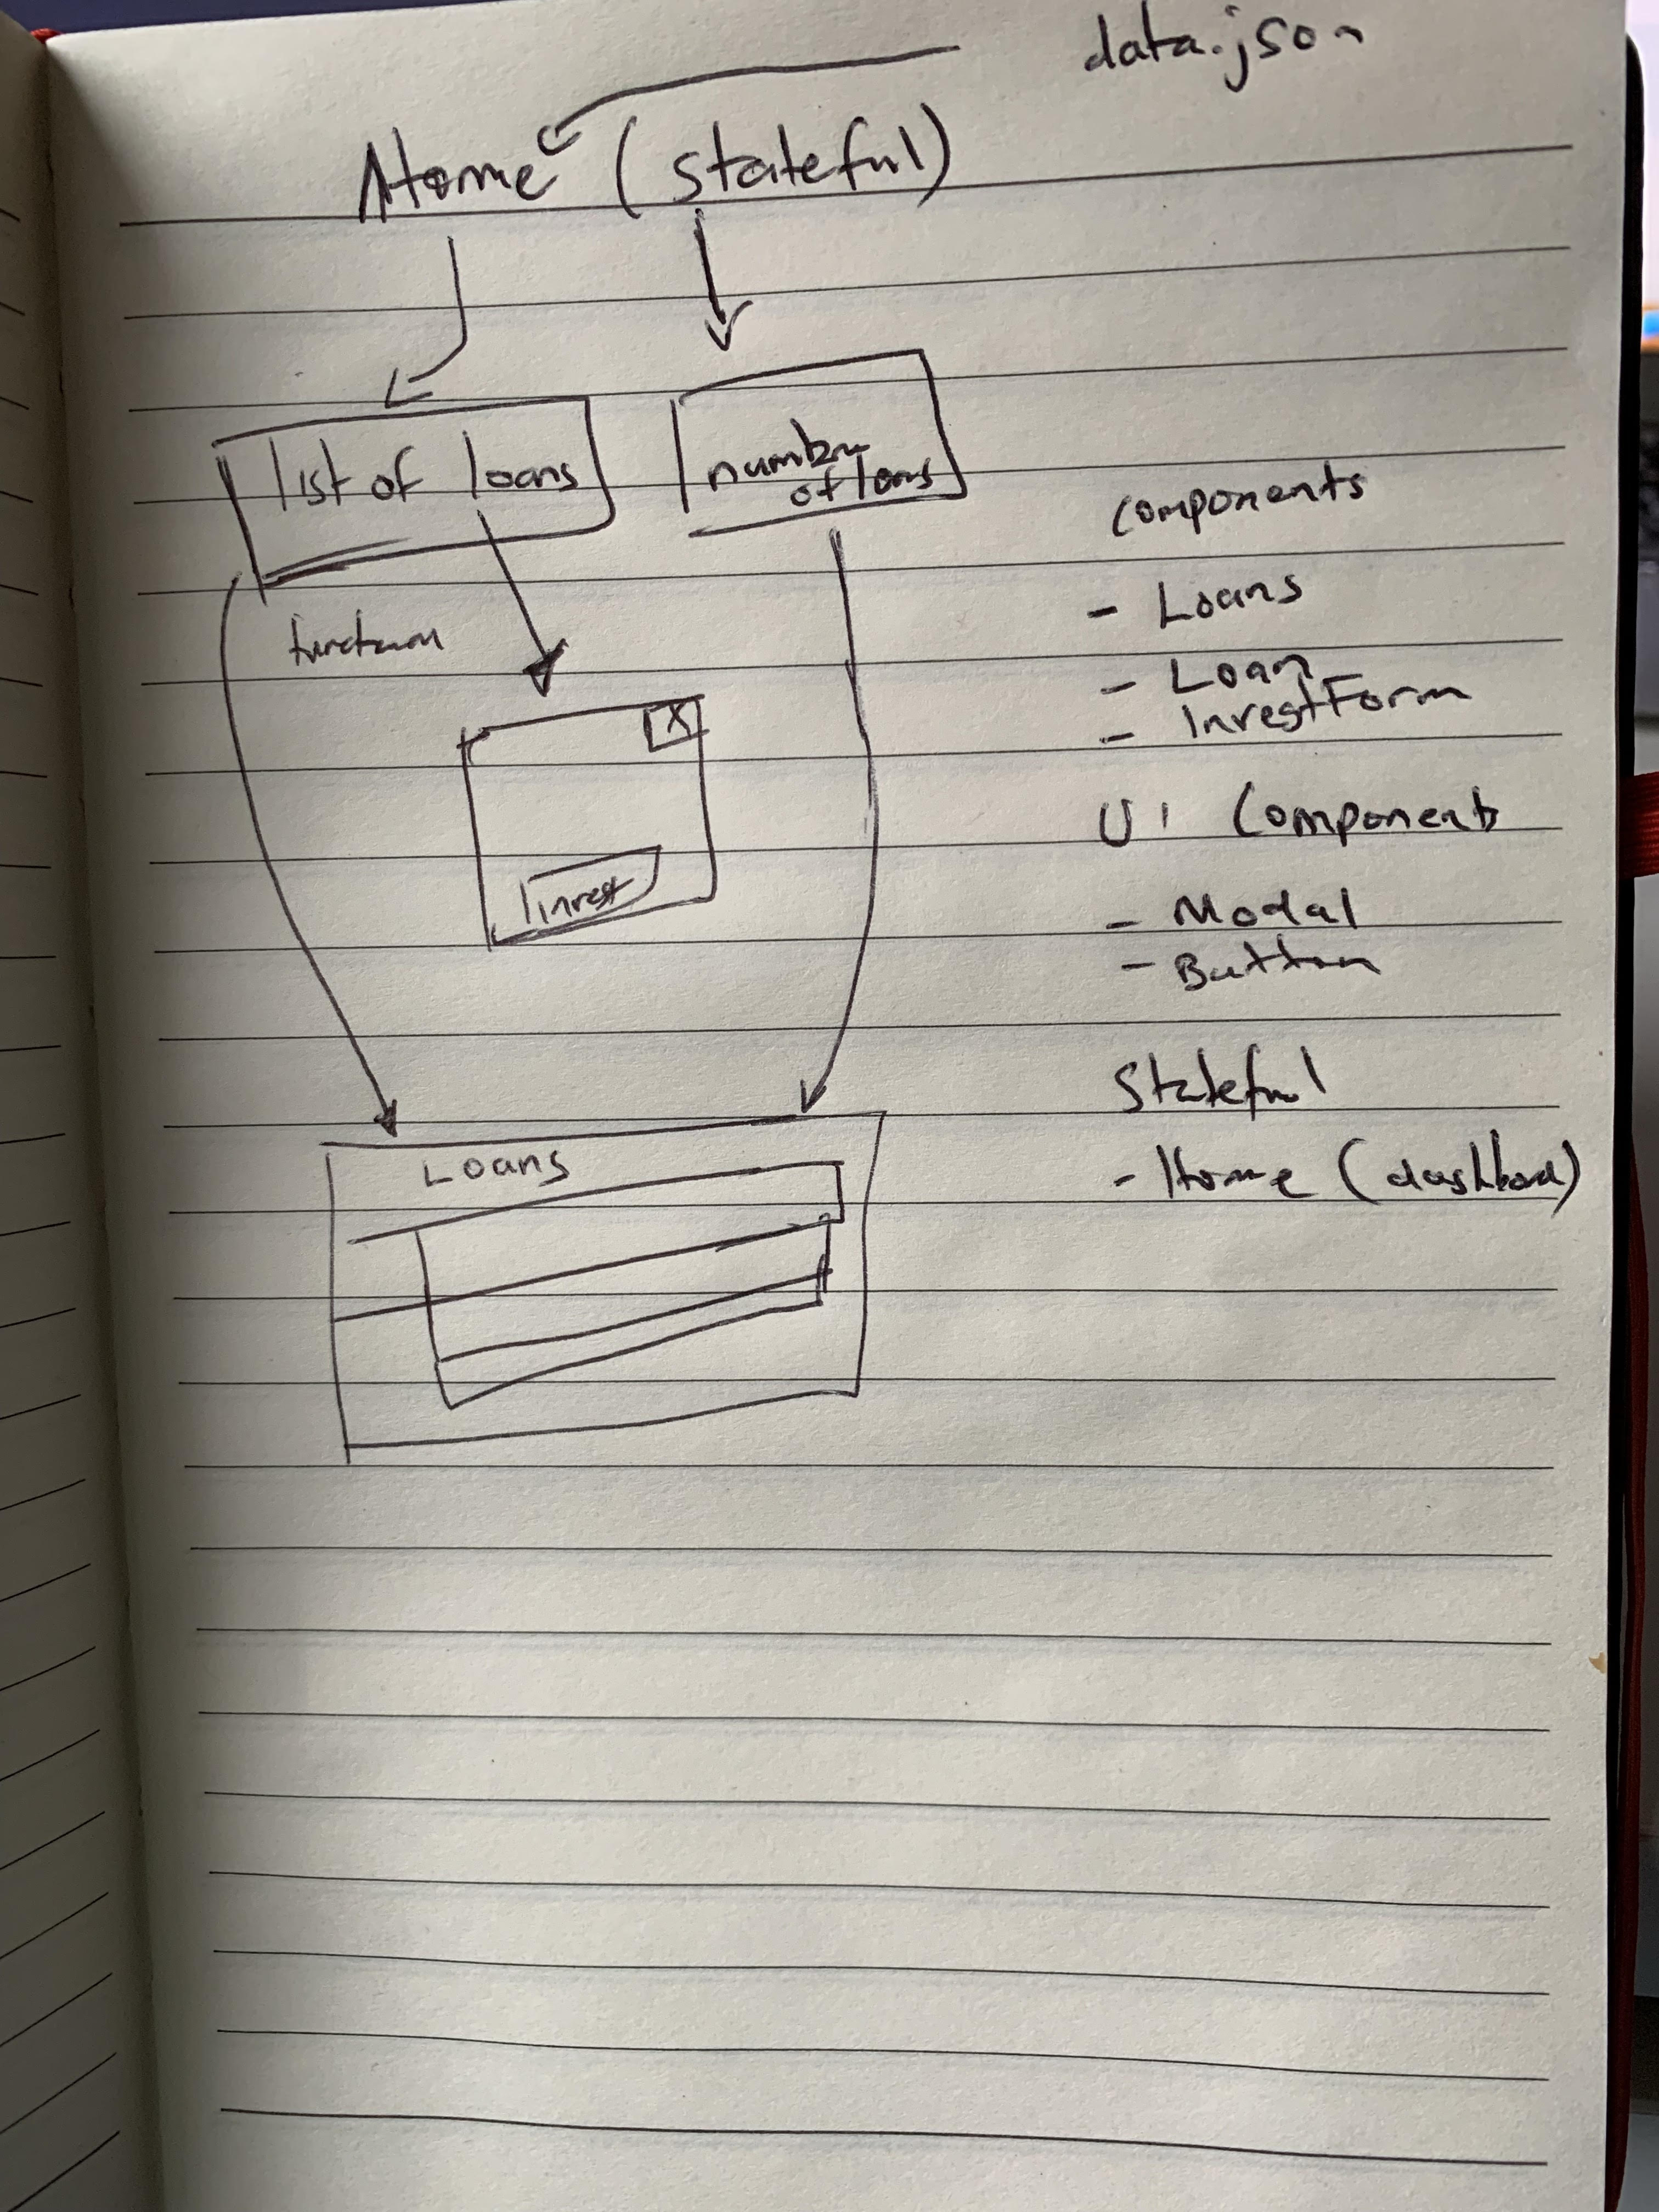 data.json
Home (stateful)
list of loans
number
of loans
function
X
invest
Loans
components
- Loans
- Loan
- InvestForm
UI Components
- Modal
- Button
Stateful
- Home (dashboard)